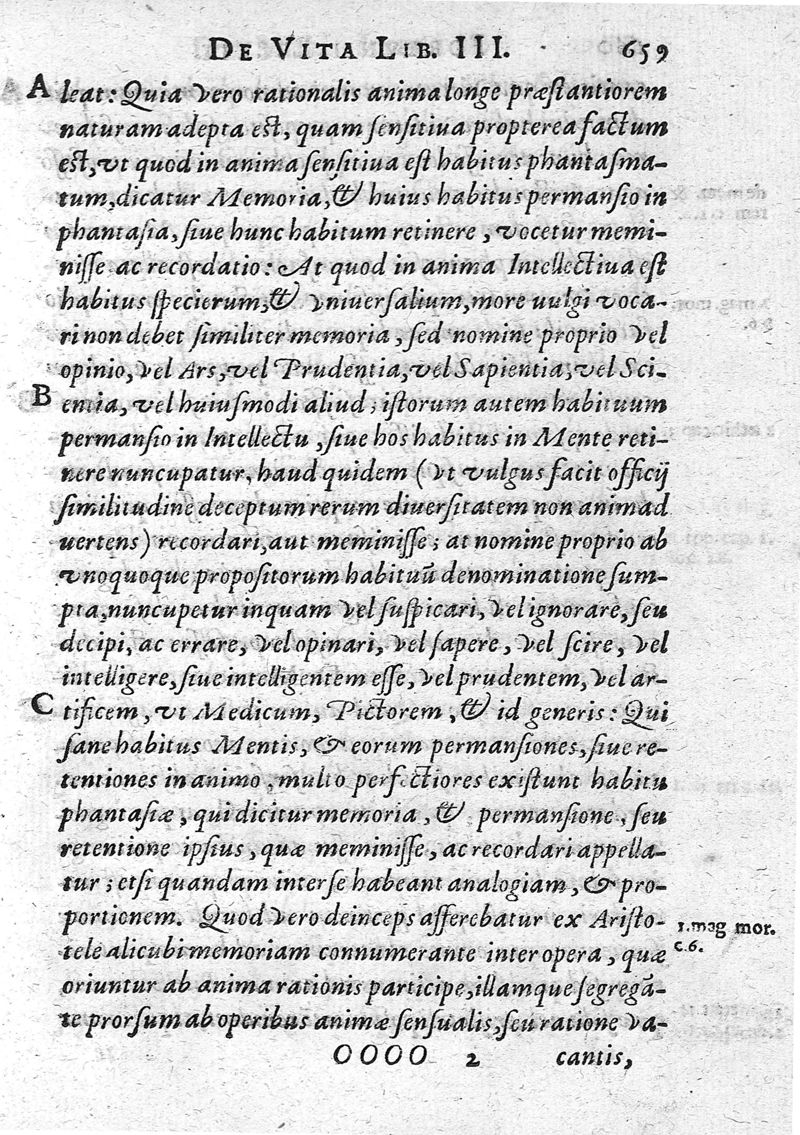 DE VITA LIB. III. 659
A leat: Quia vero rationalis anima longe præstantiorem
naturam adepta est, quam sensitiua propterea factum
est, vt quod in anima sensitiua est habitus phantasma-
tum, dicatur Memoria, & huius habitus permansio in
phantasia, siue hunc habitum retinere, vocetur memi-
nisse ac recordatio: At quod in anima Intellectiua est
habitus specierum, & vniuersalium, more uulgi voca-
ri non debet similiter memoria, sed nomine proprio vel
opinio, vel Ars, vel Prudentia, vel Sapientia, vel Sci-
B entia, vel huiusmodi aliud; istorum autem habituum
permansio in Intellectu, siue hos habitus in Mente reti-
nere nuncupatur, haud quidem (vt vulgus facit officij
similitudine deceptum rerum diuersitatem non animad
uertens) recordari, aut meminisse; at nomine proprio ab
vnoquoque propositorum habituū denominatione sum-
pta, nuncupetur inquam vel suspicari, vel ignorare, seu
decipi, ac errare, vel opinari, vel sapere, vel scire, vel
intelligere, siue intelligentem esse, vel prudentem, vel ar-
C tificem, vt Medicum, Pictorem, & id generis: Qui
sane habitus Mentis, & eorum permansiones, siue re-
tentiones in animo, multo perfectiores existunt habitu
phantasiæ, qui dicitur memoria, & permansione, seu
retentione ipsius, quæ meminisse, ac recordari appella-
tur; etsi quandam inter se habeant analogiam, & pro-
portionem. Quod vero deinceps afferebatur ex Aristo-
tele alicubi memoriam connumerante inter opera, quæ
oriuntur ab anima rationis participe, illamque segregā-
te prorsum ab operibus animæ sensualis, seu ratione va-
1. mag mor.
c. 6.
OOOO 2 cantis,